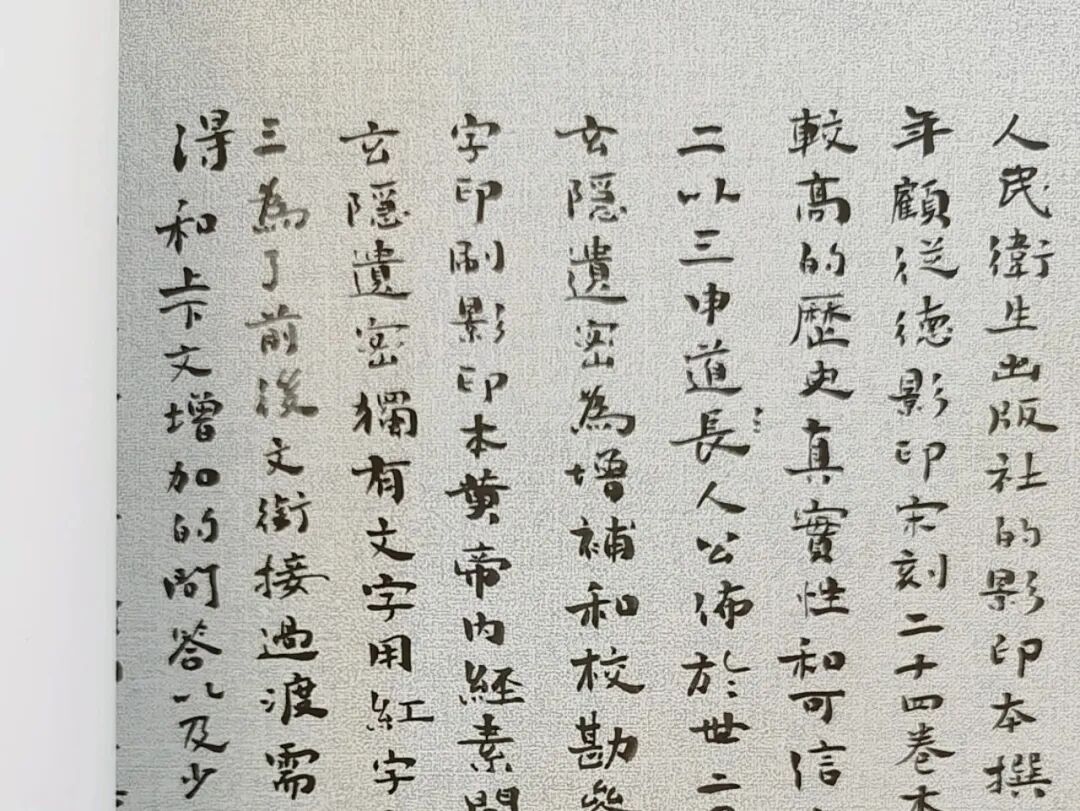 人民衛生出版社的影印本撰
年顧從德影印宋刻二十四卷本
較高的歷史真實性和可信
二以三申道長人公佈於世二
玄隱遺密為增補和校勘
字印刷影印本黄帝内経素問
玄隱遺密獨有文字用紅字
三為了前後文銜接過渡需
得和上下文增加的問答以及少